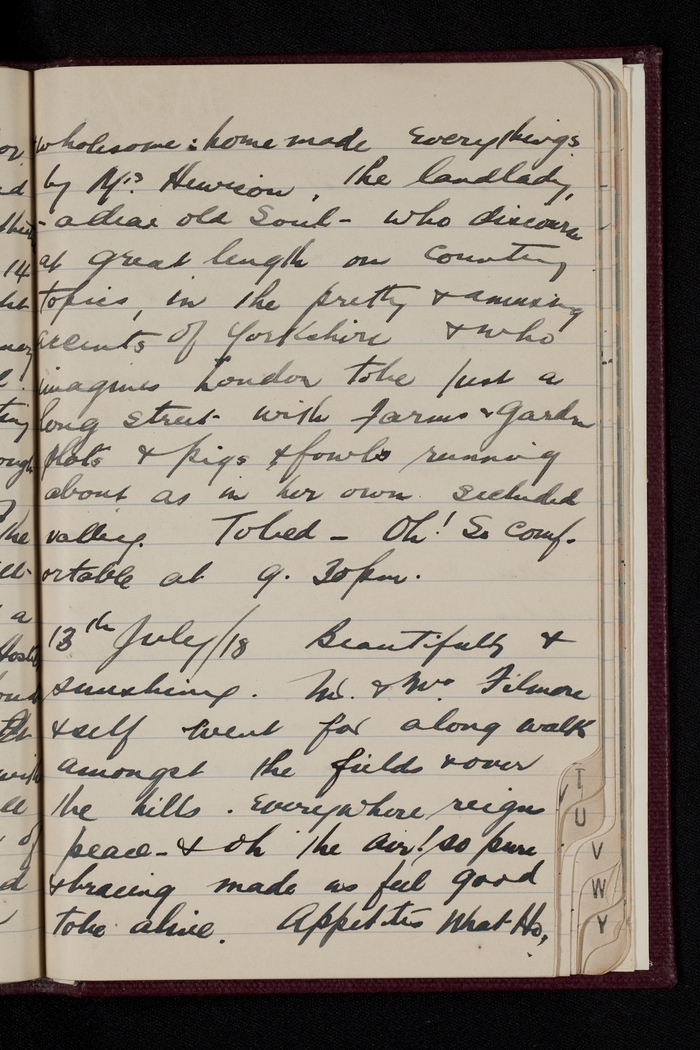 wholesome: home made everythings
by Mrs. Hewison, the landlady,
- a dear old Soul - who discourses
at great length on country
topics, in the pretty & amusing
accents of Yorkshire & who
imagines London to be just a
long street with farms & Garden
plots & pigs & fowls running
about as in her own secluded
valley. To bed - Oh! So comf-
ortable at 9.30pm.
13th July/18 Beautifully &
sunshiny. Mr. & Mrs Filmore
& self went for a long walk
amongst the fields & over
the hills. Everywhere reigns
peace - & oh the air! so pure
& bracing made us feel good
to be alive. Appetites What Ho,
T
U
V
W
Y